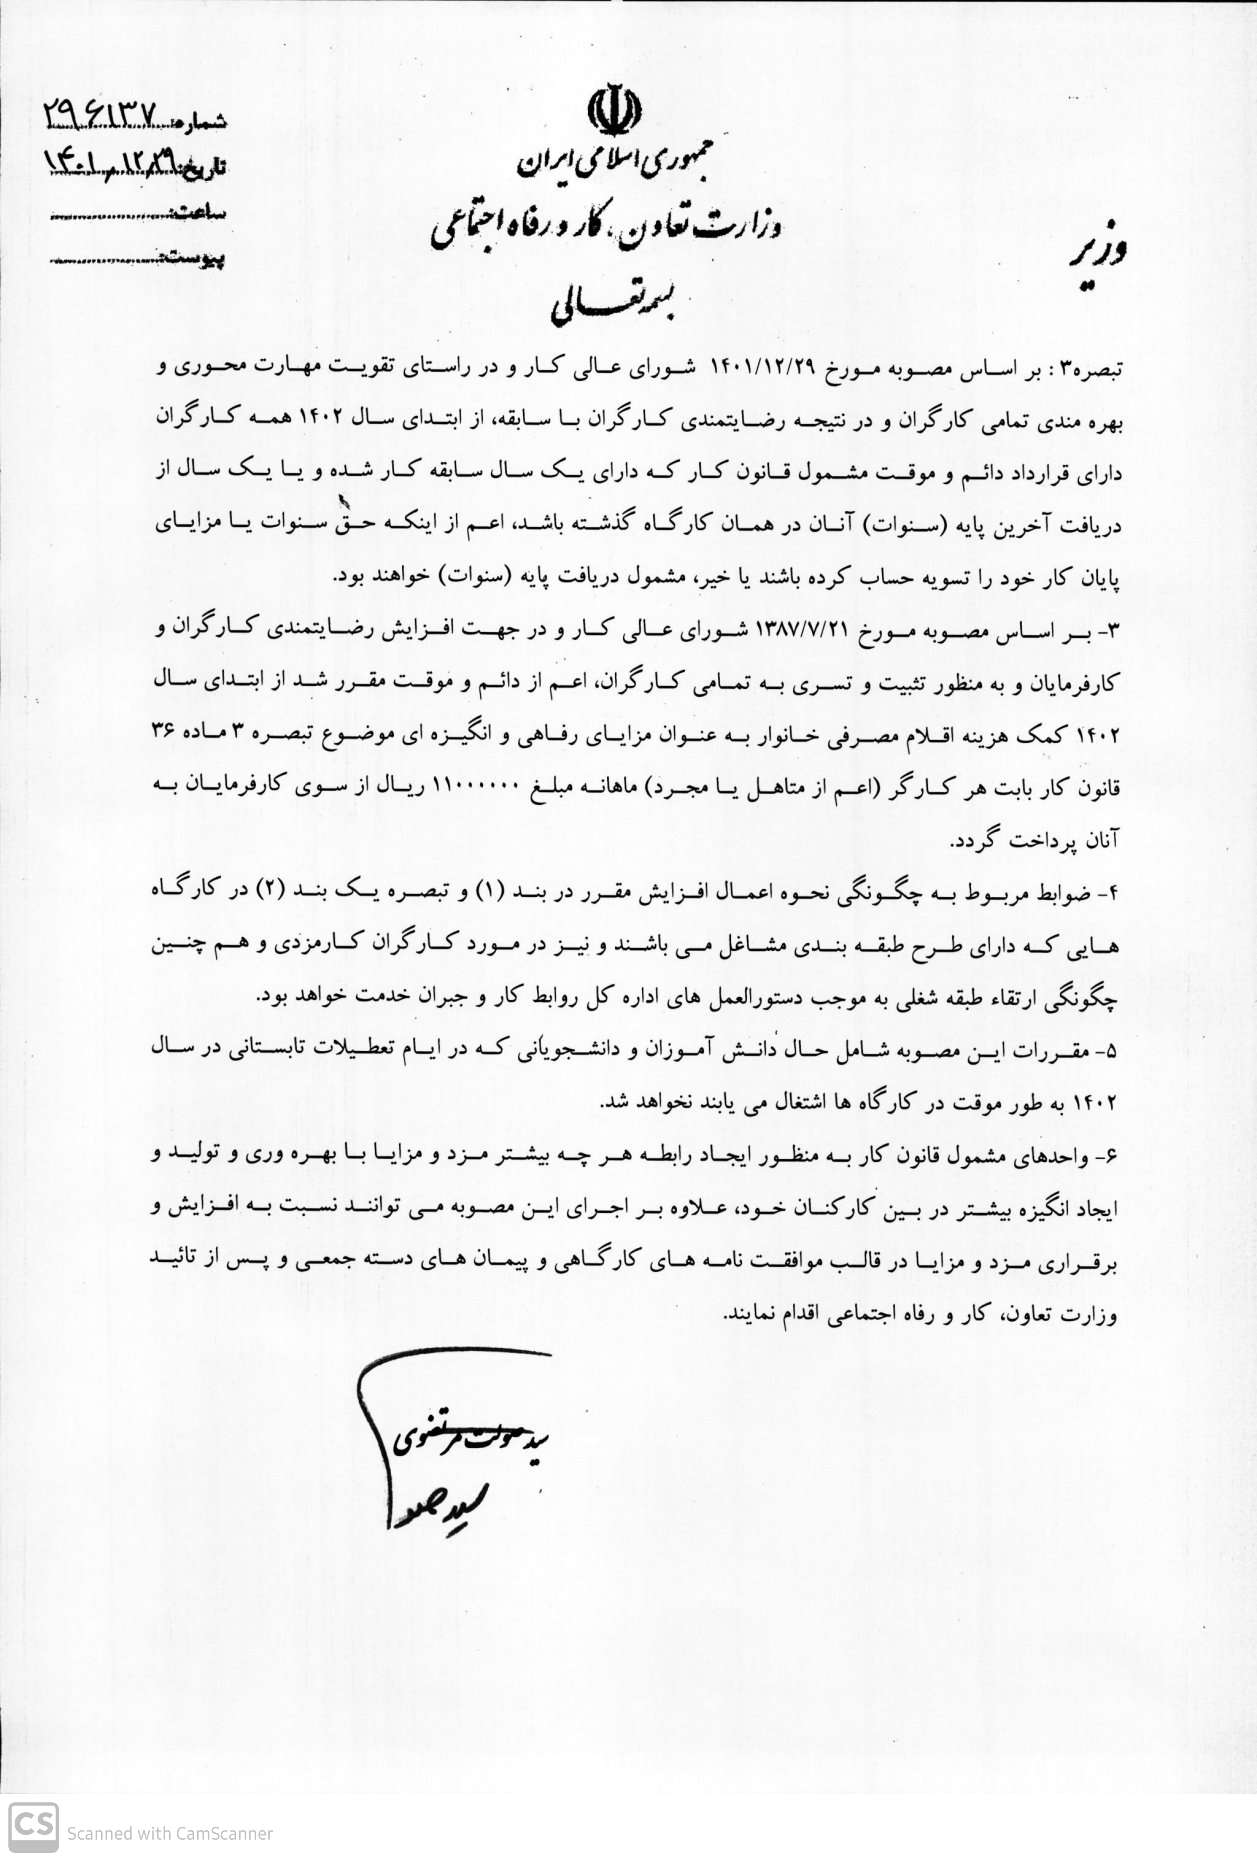 جمهوری اسلامی ایران
وزارت تعاون، کار و رفاه اجتماعی
وزیر
شماره: ۲۹۶۱۳۷
تاریخ: ۱۴۰۱/۱۲/۲۹
ساعت:
پیوست:
بسمه تعالی
تبصره۳ : بر اساس مصوبه مورخ ۱۴۰۱/۱۲/۲۹ شورای عالی کار و در راستای تقویت مهارت محوری و
بهره مندی تمامی کارگران و در نتیجه رضایتمندی کارگران با سابقه، از ابتدای سال ۱۴۰۲ همه کارگران
دارای قرارداد دائم و موقت مشمول قانون کار که دارای یک سال سابقه کار شده و یا یک سال از
دریافت آخرین پایه (سنوات) آنان در همان کارگاه گذشته باشد، اعم از اینکه حق سنوات یا مزایای
پایان کار خود را تسویه حساب کرده باشند یا خیر، مشمول دریافت پایه (سنوات) خواهند بود.
۳- بر اساس مصوبه مورخ ۱۳۸۷/۷/۲۱ شورای عالی کار و در جهت افزایش رضایتمندی کارگران و
کارفرمایان و به منظور تثبیت و تسری به تمامی کارگران، اعم از دائم و موقت مقرر شد از ابتدای سال
۱۴۰۲ کمک هزینه اقلام مصرفی خانوار به عنوان مزایای رفاهی و انگیزه ای موضوع تبصره ۳ ماده ۳۶
قانون کار بابت هر کارگر (اعم از متاهل یا مجرد) ماهانه مبلغ ۱۱۰۰۰۰۰۰ ریال از سوی کارفرمایان به
آنان پرداخت گردد.
۴- ضوابط مربوط به چگونگی نحوه اعمال افزایش مقرر در بند (۱) و تبصره یک بند (۲) در کارگاه
هایی که دارای طرح طبقه بندی مشاغل می باشند و نیز در مورد کارگران کارمزدی و هم چنین
چگونگی ارتقاء طبقه شغلی به موجب دستورالعمل های اداره کل روابط کار و جبران خدمت خواهد بود.
۵- مقررات این مصوبه شامل حال دانش آموزان و دانشجویانی که در ایام تعطیلات تابستانی در سال
۱۴۰۲ به طور موقت در کارگاه ها اشتغال می یابند نخواهد شد.
۶- واحدهای مشمول قانون کار به منظور ایجاد رابطه هر چه بیشتر مزد و مزایا با بهره وری و تولید و
ایجاد انگیزه بیشتر در بین کارکنان خود، علاوه بر اجرای این مصوبه می توانند نسبت به افزایش و
برقراری مزد و مزایا در قالب موافقت نامه های کارگاهی و پیمان های دسته جمعی و پس از تائید
وزارت تعاون، کار و رفاه اجتماعی اقدام نمایند.
سید صولت مرتضوی
CS Scanned with CamScanner